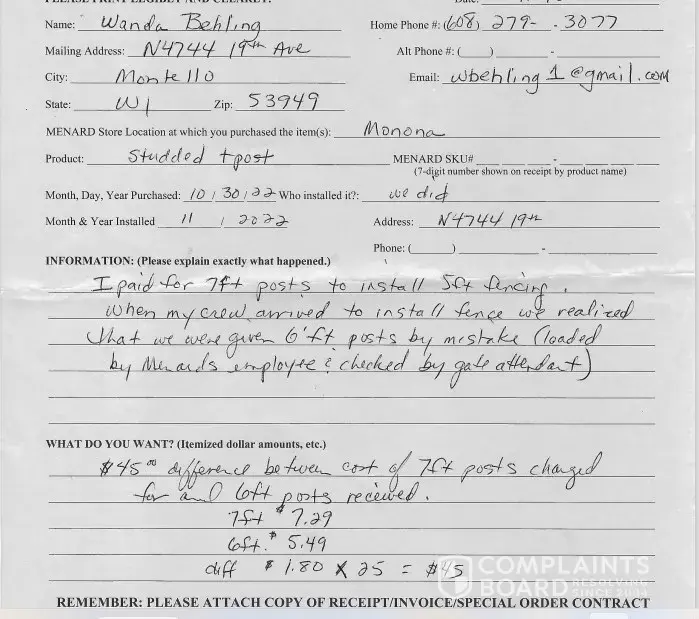 PLEASE PRINT LEGIBLY AND CLEARLY. Date:
Name: Wanda Behling Home Phone #: (608) 279- . 3077
Mailing Address: N4744 19th Ave Alt Phone #: ( ) -
City: Montello Email: wbehling1@gmail.com
State: WI Zip: 53949
MENARD Store Location at which you purchased the item(s): Monona
Product: Studded tpost MENARD SKU# -
(7-digit number shown on receipt by product name)
Month, Day, Year Purchased: 10 / 30 / 22 Who installed it?: we did
Month & Year Installed 11 / 2022 Address: N4744 19th
Phone: ( ) -
INFORMATION: (Please explain exactly what happened.)
I paid for 7ft posts to install 5ft fencing.
When my crew arrived to install fence we realized
that we were given 6'ft posts by mistake (loaded
by Menards employee & checked by gate attendant)
WHAT DO YOU WANT? (Itemized dollar amounts, etc.)
$45.00 difference between cost of 7ft posts charged
for and 6ft posts received.
7ft $ 7.29
6ft. $ 5.49
diff $ 1.80 X 25 = $45
COMPLAINTS
BOARD RESOLVING
SINCE 2004
REMEMBER: PLEASE ATTACH COPY OF RECEIPT/INVOICE/SPECIAL ORDER CONTRACT